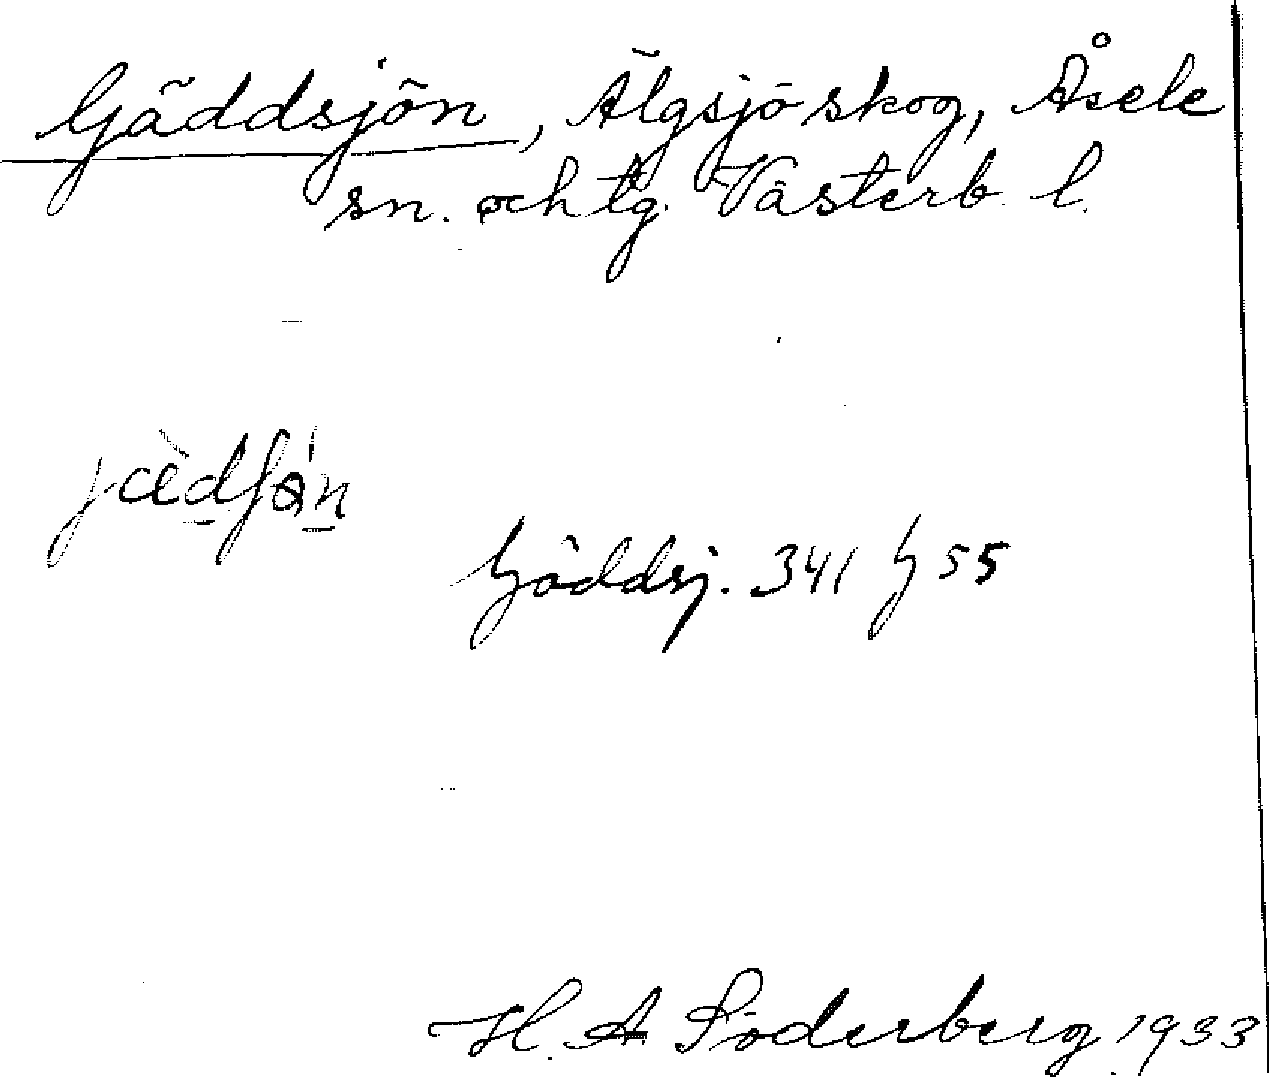 Gäddsjön, Älgsjö skog, Åsele
sn. och tg. Västerb. l.
Gäddsj. 341 G 55
H. A Söderberg 1933